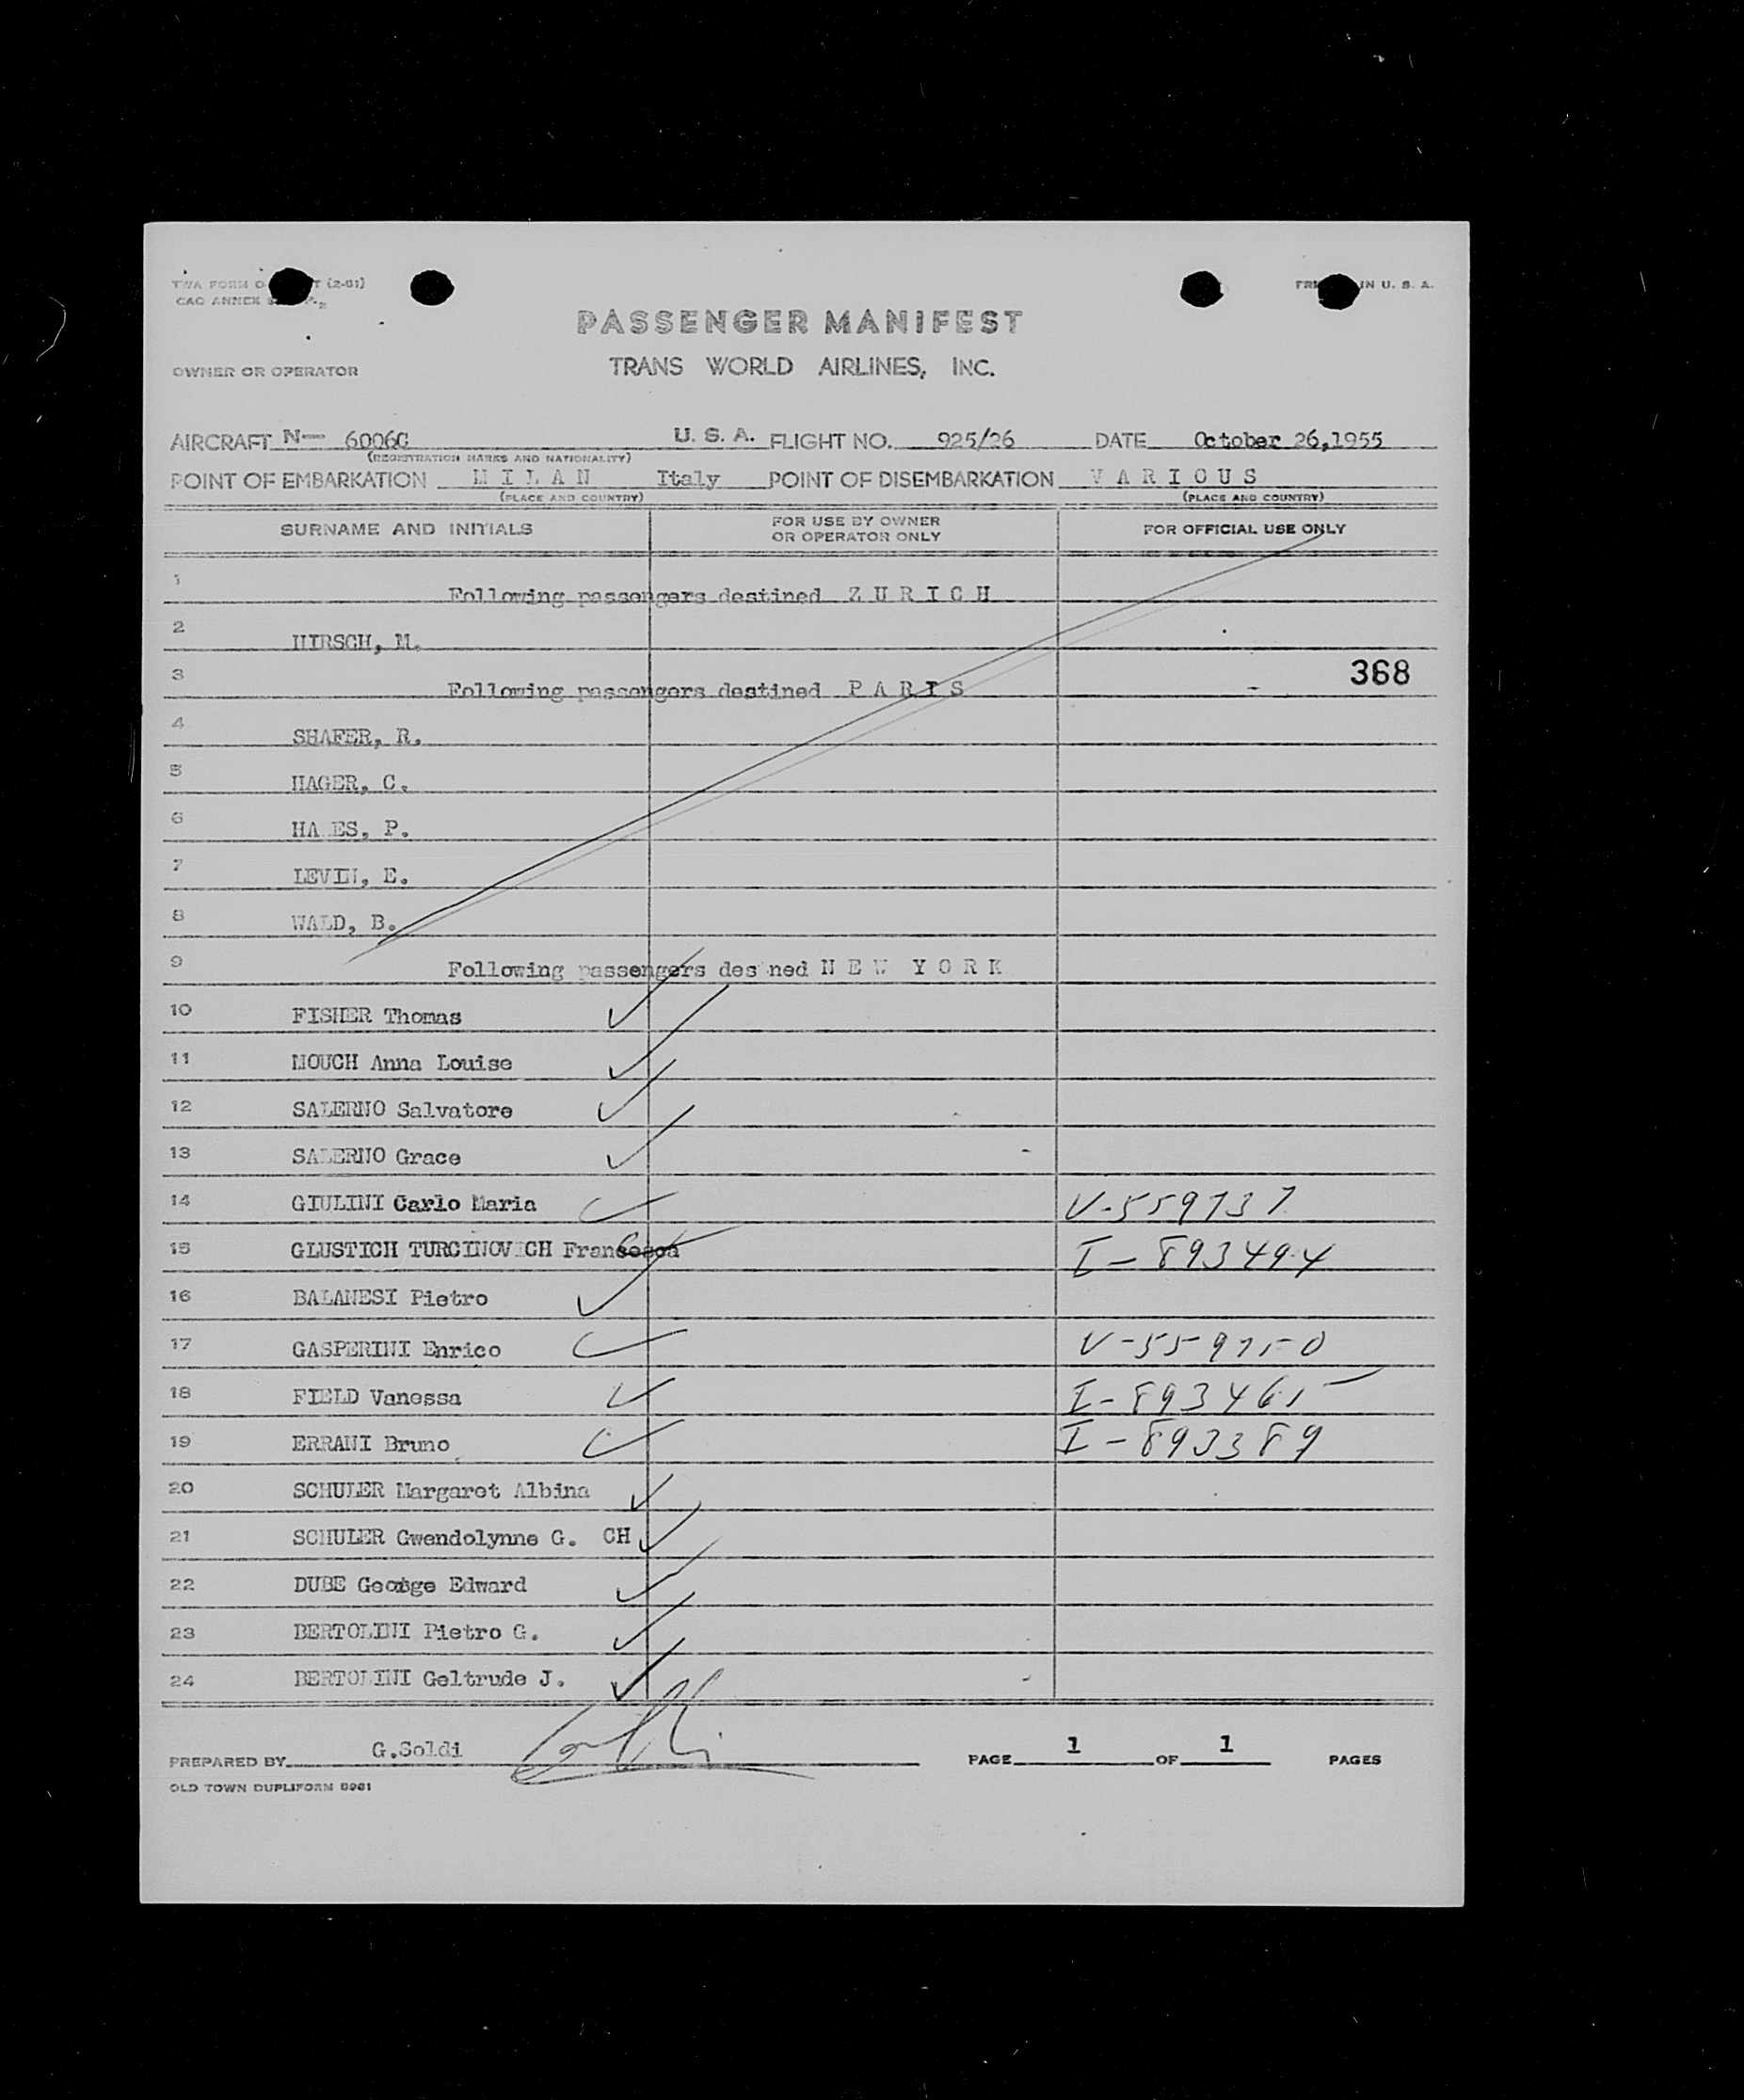 TWA FORM O T (2-61)
CAO ANNEX
PRI IN U. S. A.
PASSENGER MANIFEST
OWNER OR OPERATOR TRANS WORLD AIRLINES, INC.
AIRCRAFT N— 6006C U. S. A. FLIGHT NO. 925/26 DATE October 26,1955
(REGISTRATION MARKS AND NATIONALITY)
POINT OF EMBARKATION M I L A N Italy POINT OF DISEMBARKATION V A R I O U S
(PLACE AND COUNTRY) (PLACE AND COUNTRY)
SURNAME AND INITIALS FOR USE BY OWNER OR OPERATOR ONLY FOR OFFICIAL USE ONLY
1 Following passengers destined Z U R I C H
2 HIRSCH, M.
368
3 Following passengers destined P A R I S
4 SHAFER, R.
5 HAGER, C.
6 HA ES, P.
7 LEVIN, E.
8 WALD, B.
9 Following passengers des ned N E W Y O R K
10 FISHER Thomas
11 MOUCH Anna Louise
12 SALERNO Salvatore
13 SALERNO Grace
14 GIULINI Carlo Maria V-559737
15 GLUSTICH TURCINOVICH Francesca I-893494
16 BALANESI Pietro
17 GASPERINI Enrico V-559750
18 FIELD Vanessa I-893465
19 ERRANI Bruno I-893389
20 SCHULER Margaret Albina
21 SCHULER Gwendolynne G. CH
22 DUBE George Edward
23 BERTOLINI Pietro G.
24 BERTOLINI Geltrude J.
PREPARED BY G.Soldi PAGE 1 OF 1 PAGES
OLD TOWN DUPLIFORM 8981